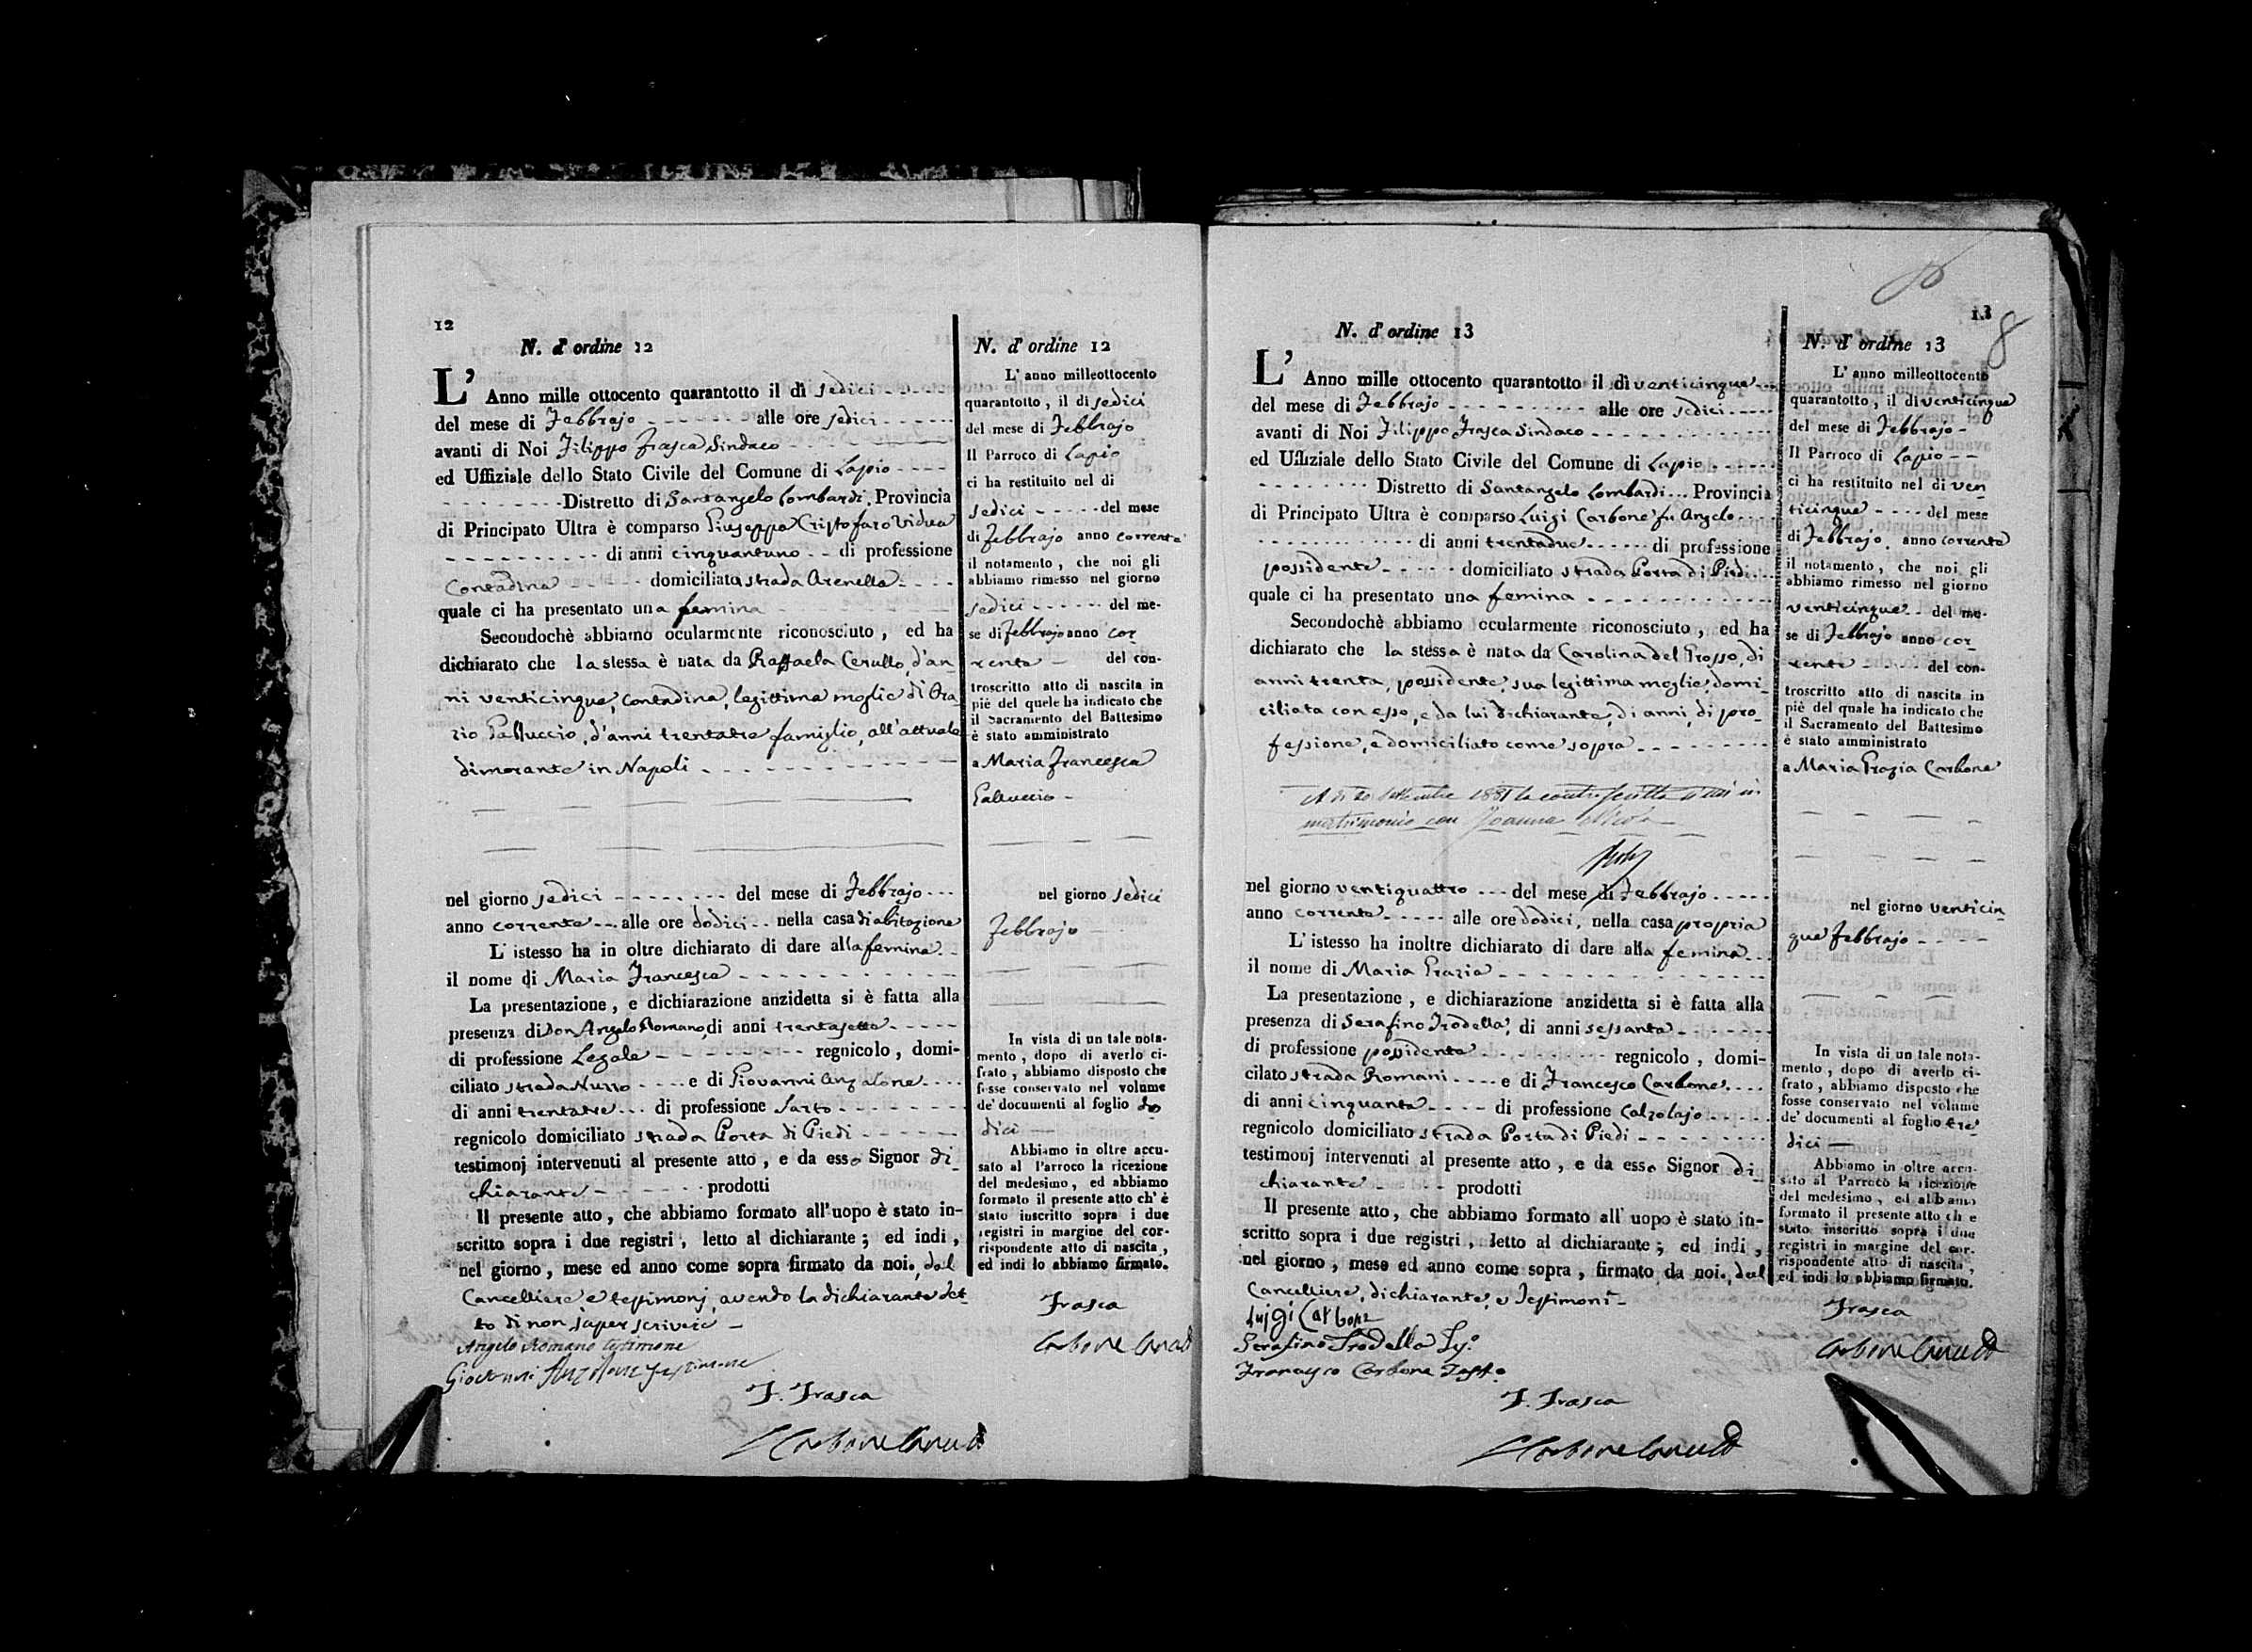 12
N. d' ordine 12
L' Anno mille ottocento quarantotto il dì sedici
del mese di Febbrajo alle ore sedici
avanti di Noi Filippo Frasca Sindaco
ed Uffiziale dello Stato Civile del Comune di Lapio
Distretto di Santangelo Lombardi. Provincia
di Principato Ultra è comparso Giuseppa Cristofaro Vidua
di anni cinquantuno di professione
Contadina domiciliata strada Arenella
quale ci ha presentato una femina
Secondochè abbiamo ocularmente riconosciuto, ed ha
dichiarato che la stessa è nata da Raffaela Cerullo, d'an
ni venticinque, contadina, legittima moglie di Ora
zio Galluccio, d'anni trentatre famiglio, all'attuale
dimorante in Napoli
nel giorno sedici del mese di Febbrajo
anno corrente alle ore dodici nella casa di abitazione
L' istesso ha in oltre dichiarato di dare alla femina
il nome di Maria Francesca
La presentazione, e dichiarazione anzidetta si è fatta alla
presenza di Don Angelo Romano, di anni trentasette
di professione Legale regnicolo, domi-
ciliato strada Nuzzo e di Giovanni Anzalone
di anni trentatre di professione Sarto
regnicolo domiciliato strada Porta di Piedi
testimonj intervenuti al presente atto, e da esso Signor di
chiarante prodotti
Il presente atto, che abbiamo formato all'uopo è stato in-
scritto sopra i due registri, letto al dichiarante; ed indi,
nel giorno, mese ed anno come sopra firmato da noi, dal
Cancelliere e testimonj, avendo la dichiarante det
to di non saper scrivere
Angelo Romano testimone
Giovanni Anzalone testimone
F. Frasca
Carbone
N. d' ordine 12
L' anno milleottocento
quarantotto, il dì sedici
del mese di Febbrajo
Il Parroco di Lapio
ci ha restituito nel di
sedici del mese
di Febbrajo anno corrente
il notamento, che noi gli
abbiamo rimesso nel giorno
sedici del me-
se di Febbrajo anno cor
rente del con-
troscritto atto di nascita in
piè del quele ha indicato che
il Sacramento del Battesimo
è stato amministrato
a Maria Francesca
Galluccio
nel giorno sedici
Febbrajo
In vista di un tale nota-
mento, dopo di averlo ci-
frato, abbiamo disposto che
fosse conservato nel volume
de' documenti al foglio do
dici
Abbiamo in oltre accu-
sato al Parroco la ricezione
del medesimo, ed abbiamo
formato il presente atto ch' è
stato inscritto sopra i due
registri in margine del cor-
rispondente atto di nascita,
ed indi lo abbiamo firmato.
Frasca
Carbone
13
8
N. d' ordine 13
L' Anno mille ottocento quarantotto il dì venticinque
del mese di Febbrajo alle ore sedici
avanti di Noi Filippo Frasca Sindaco
ed Uffiziale dello Stato Civile del Comune di Lapio
Distretto di Santangelo Lombardi Provincia
di Principato Ultra è comparso Luigi Carbone fu Angelo
di anni trentadue di professione
possidente domiciliato strada Porta di Piedi
quale ci ha presentato una femina
Secondochè abbiamo ocularmente riconosciuto, ed ha
dichiarato che la stessa è nata da Carolina del Grosso, di
anni trenta, possidente, sua legittima moglie, domi
ciliata con esso, e da lui dichiarante, di anni, di pro
fessione, e domiciliato come sopra
A dì 20 settembre 1881 la controscritta si unì in
matrimonio con
nel giorno ventiquattro del mese di Febbrajo
anno corrente alle ore dodici, nella casa propria
L' istesso ha inoltre dichiarato di dare alla femina
il nome di Maria Grazia
La presentazione, e dichiarazione anzidetta si è fatta alla
presenza di Serafino Trodella, di anni sessanta
di professione possidente regnicolo, domi-
cilato strada Romani e di Francesco Carbone
di anni cinquanta di professione Calzolajo
regnicolo domiciliato strada Porta di Piedi
testimonj intervenuti al presente atto, e da esso Signor di
chiarante prodotti
Il presente atto, che abbiamo formato all' uopo è stato in-
scritto sopra i due registri, letto al dichiarante; ed indi,
nel giorno, mese ed anno come sopra, firmato da noi, dal
Cancelliere, dichiarante, e Testimoni
Luigi Carbone
Serafino Trodella
Francesco Carbone
F. Frasca
Carbone
N. d' ordine 13
L' anno milleottocento
quarantotto, il dì venticinque
del mese di Febbrajo
Il Parroco di Lapio
ci ha restituito nel dì ven
ticinque del mese
di Febbrajo anno corrente
il notamento, che noi gli
abbiamo rimesso nel giorno
venticinque del me-
se di Febbrajo anno cor
rente del con-
troscritto atto di nascita in
piè del quale ha indicato che
il Sacramento del Battesimo
è stato amministrato
a Maria Grazia Carbone
nel giorno venticin
que Febbrajo
In vista di un tale nota-
mento, dopo di averlo ci-
frato, abbiamo disposto che
fosse conservato nel volume
de' documenti al foglio tre
dici
Abbiamo in oltre accu-
sato al Parroco la ricezione
del medesimo, ed abbiamo
formato il presente atto ch è
stato inscritto sopra i due
registri in margine del cor-
rispondente atto di nascita,
ed indi lo abbiamo firmato.
Frasca
Carbone